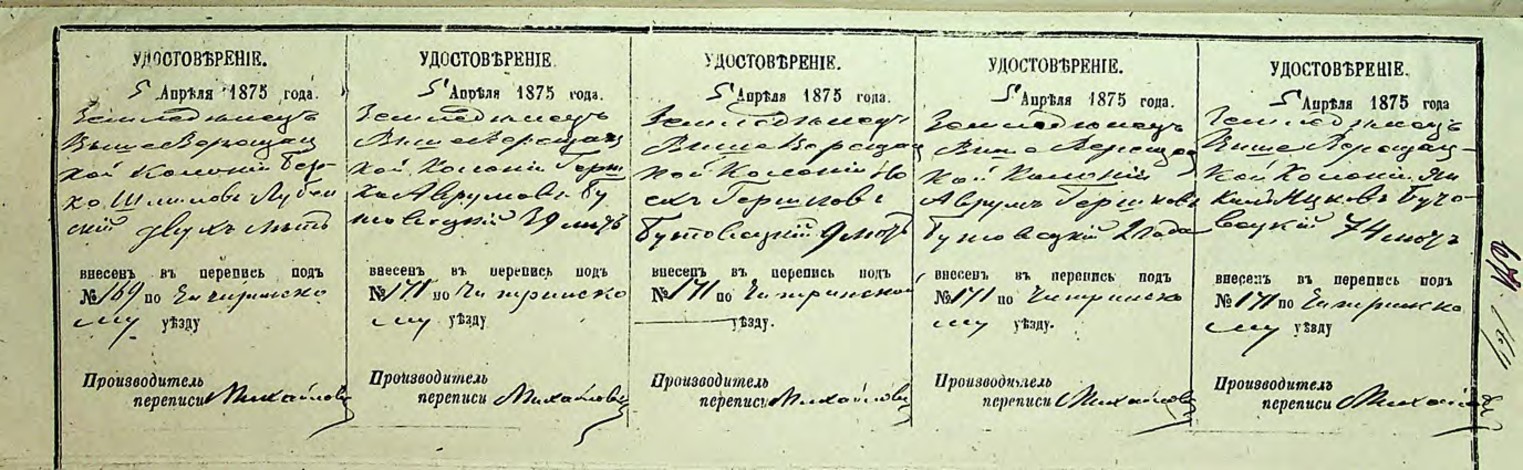 УДОСТОВѢРЕНІЕ.
5 Апрѣля 1875 года.
Земледѣлецъ
Выше Верещац
кой Колоніи Бер-
ко Шлиомовъ Лубен
скій двухъ лѣтъ
внесенъ въ перепись подъ
№ 169 по Чигиринско
му уѣзду
Производитель
переписи Михайлов
УДОСТОВѢРЕНІЕ.
5 Апрѣля 1875 года.
Земледѣлецъ
Выше Верещац
кой Колоніи Герш
ко Аврумовъ Бу
товецкій 39 лѣтъ
внесенъ въ перепись подъ
№ 171 по Чигиринско
му уѣзду
Производитель
переписи Михайлов
УДОСТОВѢРЕНІЕ.
5 Апрѣля 1875 года.
Земледѣлецъ
Выше Верещац
кой Колоніи Ио
сь Гершковъ
Бутовецкій 9 лѣтъ
внесенъ въ перепись подъ
№ 171 по Чигиринской
уѣзду.
Производитель
переписи Михайлов
УДОСТОВѢРЕНІЕ.
5 Апрѣля 1875 года.
Земледѣлецъ
Выше Верещац
кой Колоніи
Аврумъ Гершковъ
Бутовецкій 2 года
внесенъ въ перепись подъ
№ 171 по Чигиринско
му уѣзду.
Производитель
переписи Михайлов
УДОСТОВѢРЕНІЕ.
5 Апрѣля 1875 года
Земледѣлецъ
Выше Верещац-
кой Колоніи Ян
кель Ицковъ Буто-
вецкій 74 лѣтъ
внесенъ въ перепись подъ
№ 171 по Чигиринско
му уѣзду
Производитель
переписи Михайлов